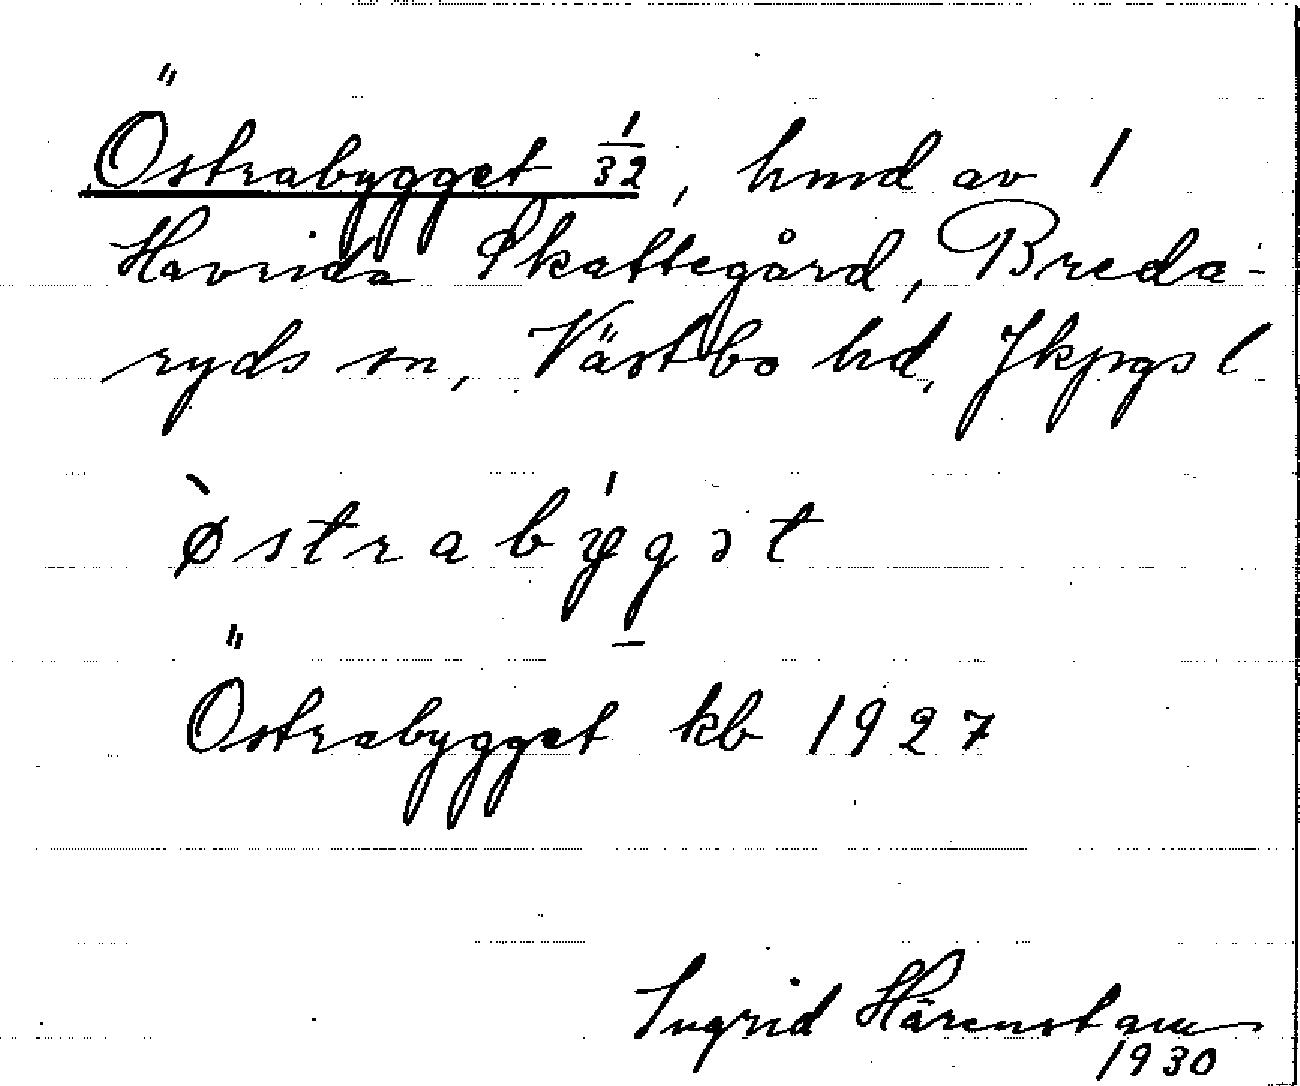 Östrabygget 1/32, hmd av 1
Havrida Skattegård, Breda-
ryds sn, Västbo hd, Jkpgs l
ø̀strabýgət
Östrabygget kb 1927
Ingrid Härenstam
1930